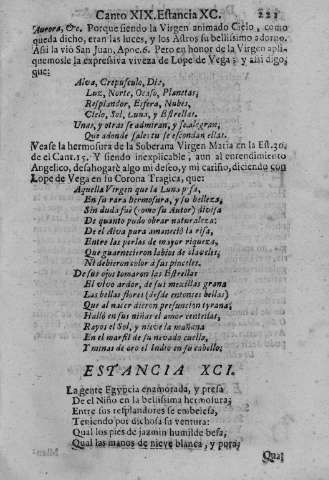 Canto XIX. Estancia XC. 221
Aurora, &c. Porque siendo la Virgen animado Cielo, como
queda dicho, eran las luces, y los Astros su bellissimo adorno.
Assi la viò San Juan, Apoc. 6. Pero en honor de la Virgen apli-
quemosle la expressiva viveza de Lope de Vega; y assi digo,
que:
Alva, Crepusculo, Dia,
Luz, Norte, Ocaso, Planetas,
Resplandor, Esfera, Nubes,
Cielo, Sol, Luna, y Estrellas.
Unas, y otras se admiran, y se alegran,
Que adonde sale su se escondan ellas.
Vease la hermosura de la Soberana Virgen Maria en la Est. 30.
de el Cant. 15. Y siendo inexplicable, aun al entendimiento
Angelico, desahogarè algo mi deseo, y mi cariño, diciendo con
Lope de Vega en su Corona Tragica, que:
Aquella Virgen que la Luna pisa,
En su rara hermosura, y su belleza,
Sin duda fuè (como su Autor) divisa
De quanto pudo obrar naturaleza:
De el Alva pura amaneciò la risa,
Entre las perlas de mayor riqueza,
Que guarnecieron labios de claveles,
Ni debieron color à sus pinceles.
De sus ojos tomaron las Estrellas
El vivo ardor, de sus mexillas grana
Las bellas flores (desde entonces bellas)
Que al nacer dieron presuncion tyrana;
Hallò en sus niñas el amor centellas,
Rayos el Sol, y nieve la mañana
En el marfil de su nevado cuello,
Y minas de oro el Indio en su cabello;
ESTANCIA XCI.
La gente Egypcia enamorada, y presa
De el Niño en la bellissima hermosura;
Entre sus resplandores se embelesa,
Teniendo por dichosa su ventura:
Qual los pies de jazmin humilde besa,
Qual las manos de nieve blanca, y pura;
Qual